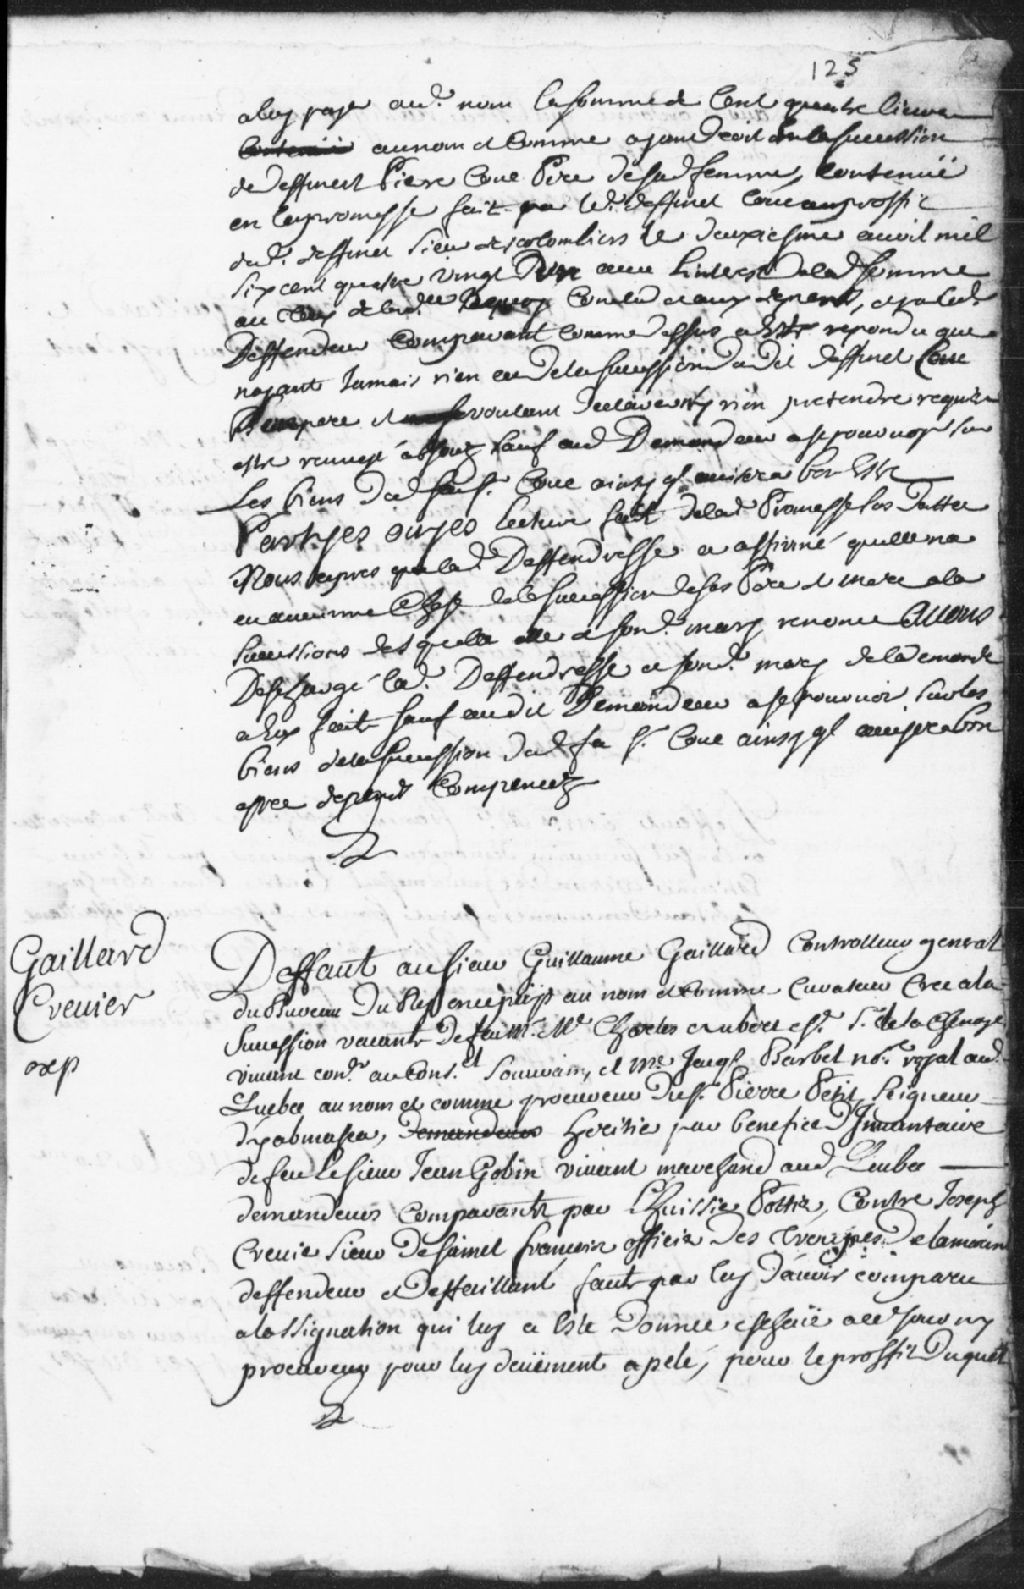 125
a luy payer aud. nom la somme de Cent quatre livres
au nom et comme ayant droit en la succession
de deffunct Pierre Coue Pere de sad. femme, Contenuë
en la promesse fait par led. deffunct Coue au proffit
dud. deffunct sieur des colombiers le deuxiesme avril mil
six cent quatre vingt avec l'interest de lad. somme
au de lad. Comd. et aux depens, et par led.
Deffendeur Comparant comme dessus a esté repondu que
nayant Jamais rien eu de la succession dudit deffunct Coue
beaupere et voulant declare ny rien pretendre requiert
estre renvoyé absouz sauf aud. Demandeur a se pourvoir sur
Les biens dud. Coue ainsy ql avisera bon Estre
Partyes ouyes lecture faitte de lad. Promesse sus dattee
Nous apres que lad. Deffendresse a affirmé quelle na
eu aucunne chose de la succession de ses Pere et mere a la
successions desquels elle a sond. mary renoncé Avons
Deschargé lad. Deffendresse et sond. mary de la demande
a eux faite sauf audit Demandeur a se pourvoir sur les
biens de la succession dud. feu Sr. Coue ainsy ql avisera bon
estre depens Compencez
Gaillard
Crevier
exp
Deffaut au sieur Guillaume Gaillard Controlleur general
du Bureau du au nom et comme Curateur Cree a la
Succession vacante de feu Mr. Me. Charles aubert esr. Sr. de la Chenaye
vivant conr. au Cons. Souverain, et Me. Jacqs Barbel nore. royal aud.
Quebec au nom et comme procureur du sr. Pierre Petit Seigneur
d'yabmaska, demandeurs heritier par benefice D'Jnventaire
de feu Le sieur Jean Gobin vivant marchand aud. Quebec
demandeurs Comparants par L'huissier Pottier, Contre Joseph
Crevier sieur De sainct francois officier des Trouppes De la marine
deffendeur et deffaillant, faute par luy d'avoir comparu
a l'assignation qui luy a esté Donnée escheüe a ce jour ny
procureur pour luy deüement apelé, pour le proffit Duquel